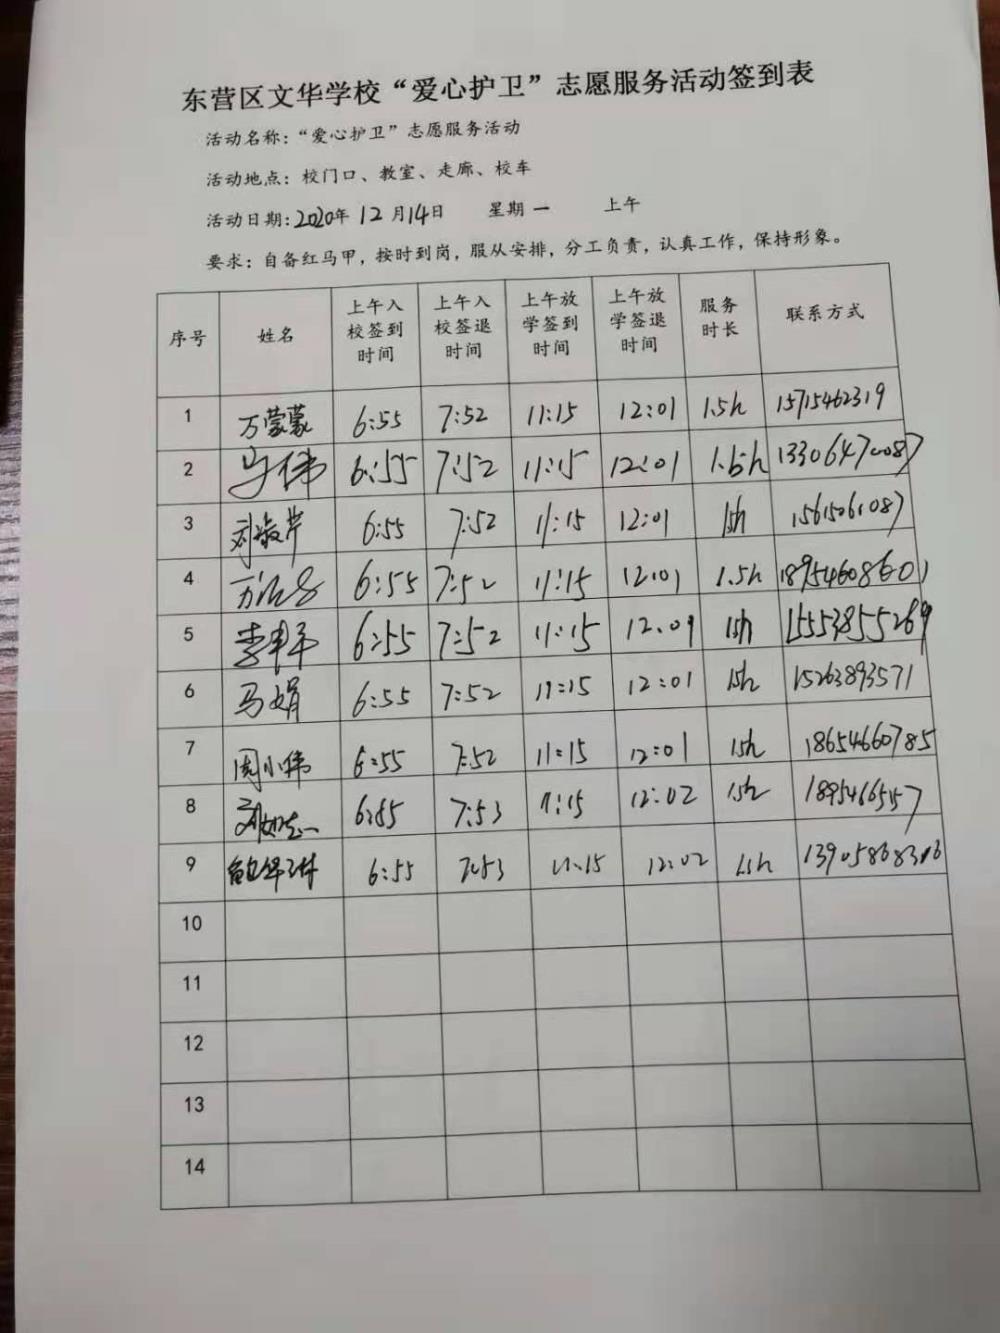 东营区文华学校“爱心护卫”志愿服务活动签到表
活动名称：“爱心护卫”志愿服务活动
活动地点：校门口、教室、走廊、校车
活动日期：2020年 12月14日 星期一 上午
要求：自备红马甲，按时到岗，服从安排，分工负责，认真工作，保持形象。
序号 姓名 上午入校签到时间 上午入校签退时间 上午放学签到时间 上午放学签退时间 服务时长 联系方式
1 万蒙蒙 6:55 7:52 11:15 12:01 1.5h 15715462319
2 马伟 6:55 7:52 11:15 12:01 1.5h 13306470087
3 6:55 7:52 11:15 12:01 1.5h 15615061087
4 6:55 7:52 11:15 12:01 1.5h 18954608601
5 6:55 7:52 11:15 12:01 1.5h 15553855269
6 马娟 6:55 7:52 11:15 12:01 1.5h 15263893571
7 周小伟 6:55 7:52 11:15 12:01 1.5h 18654660785
8 6:55 7:53 11:15 12:02 1.5h
9 6:55 7:53 11:15 12:02 1.5h
10
11
12
13
14